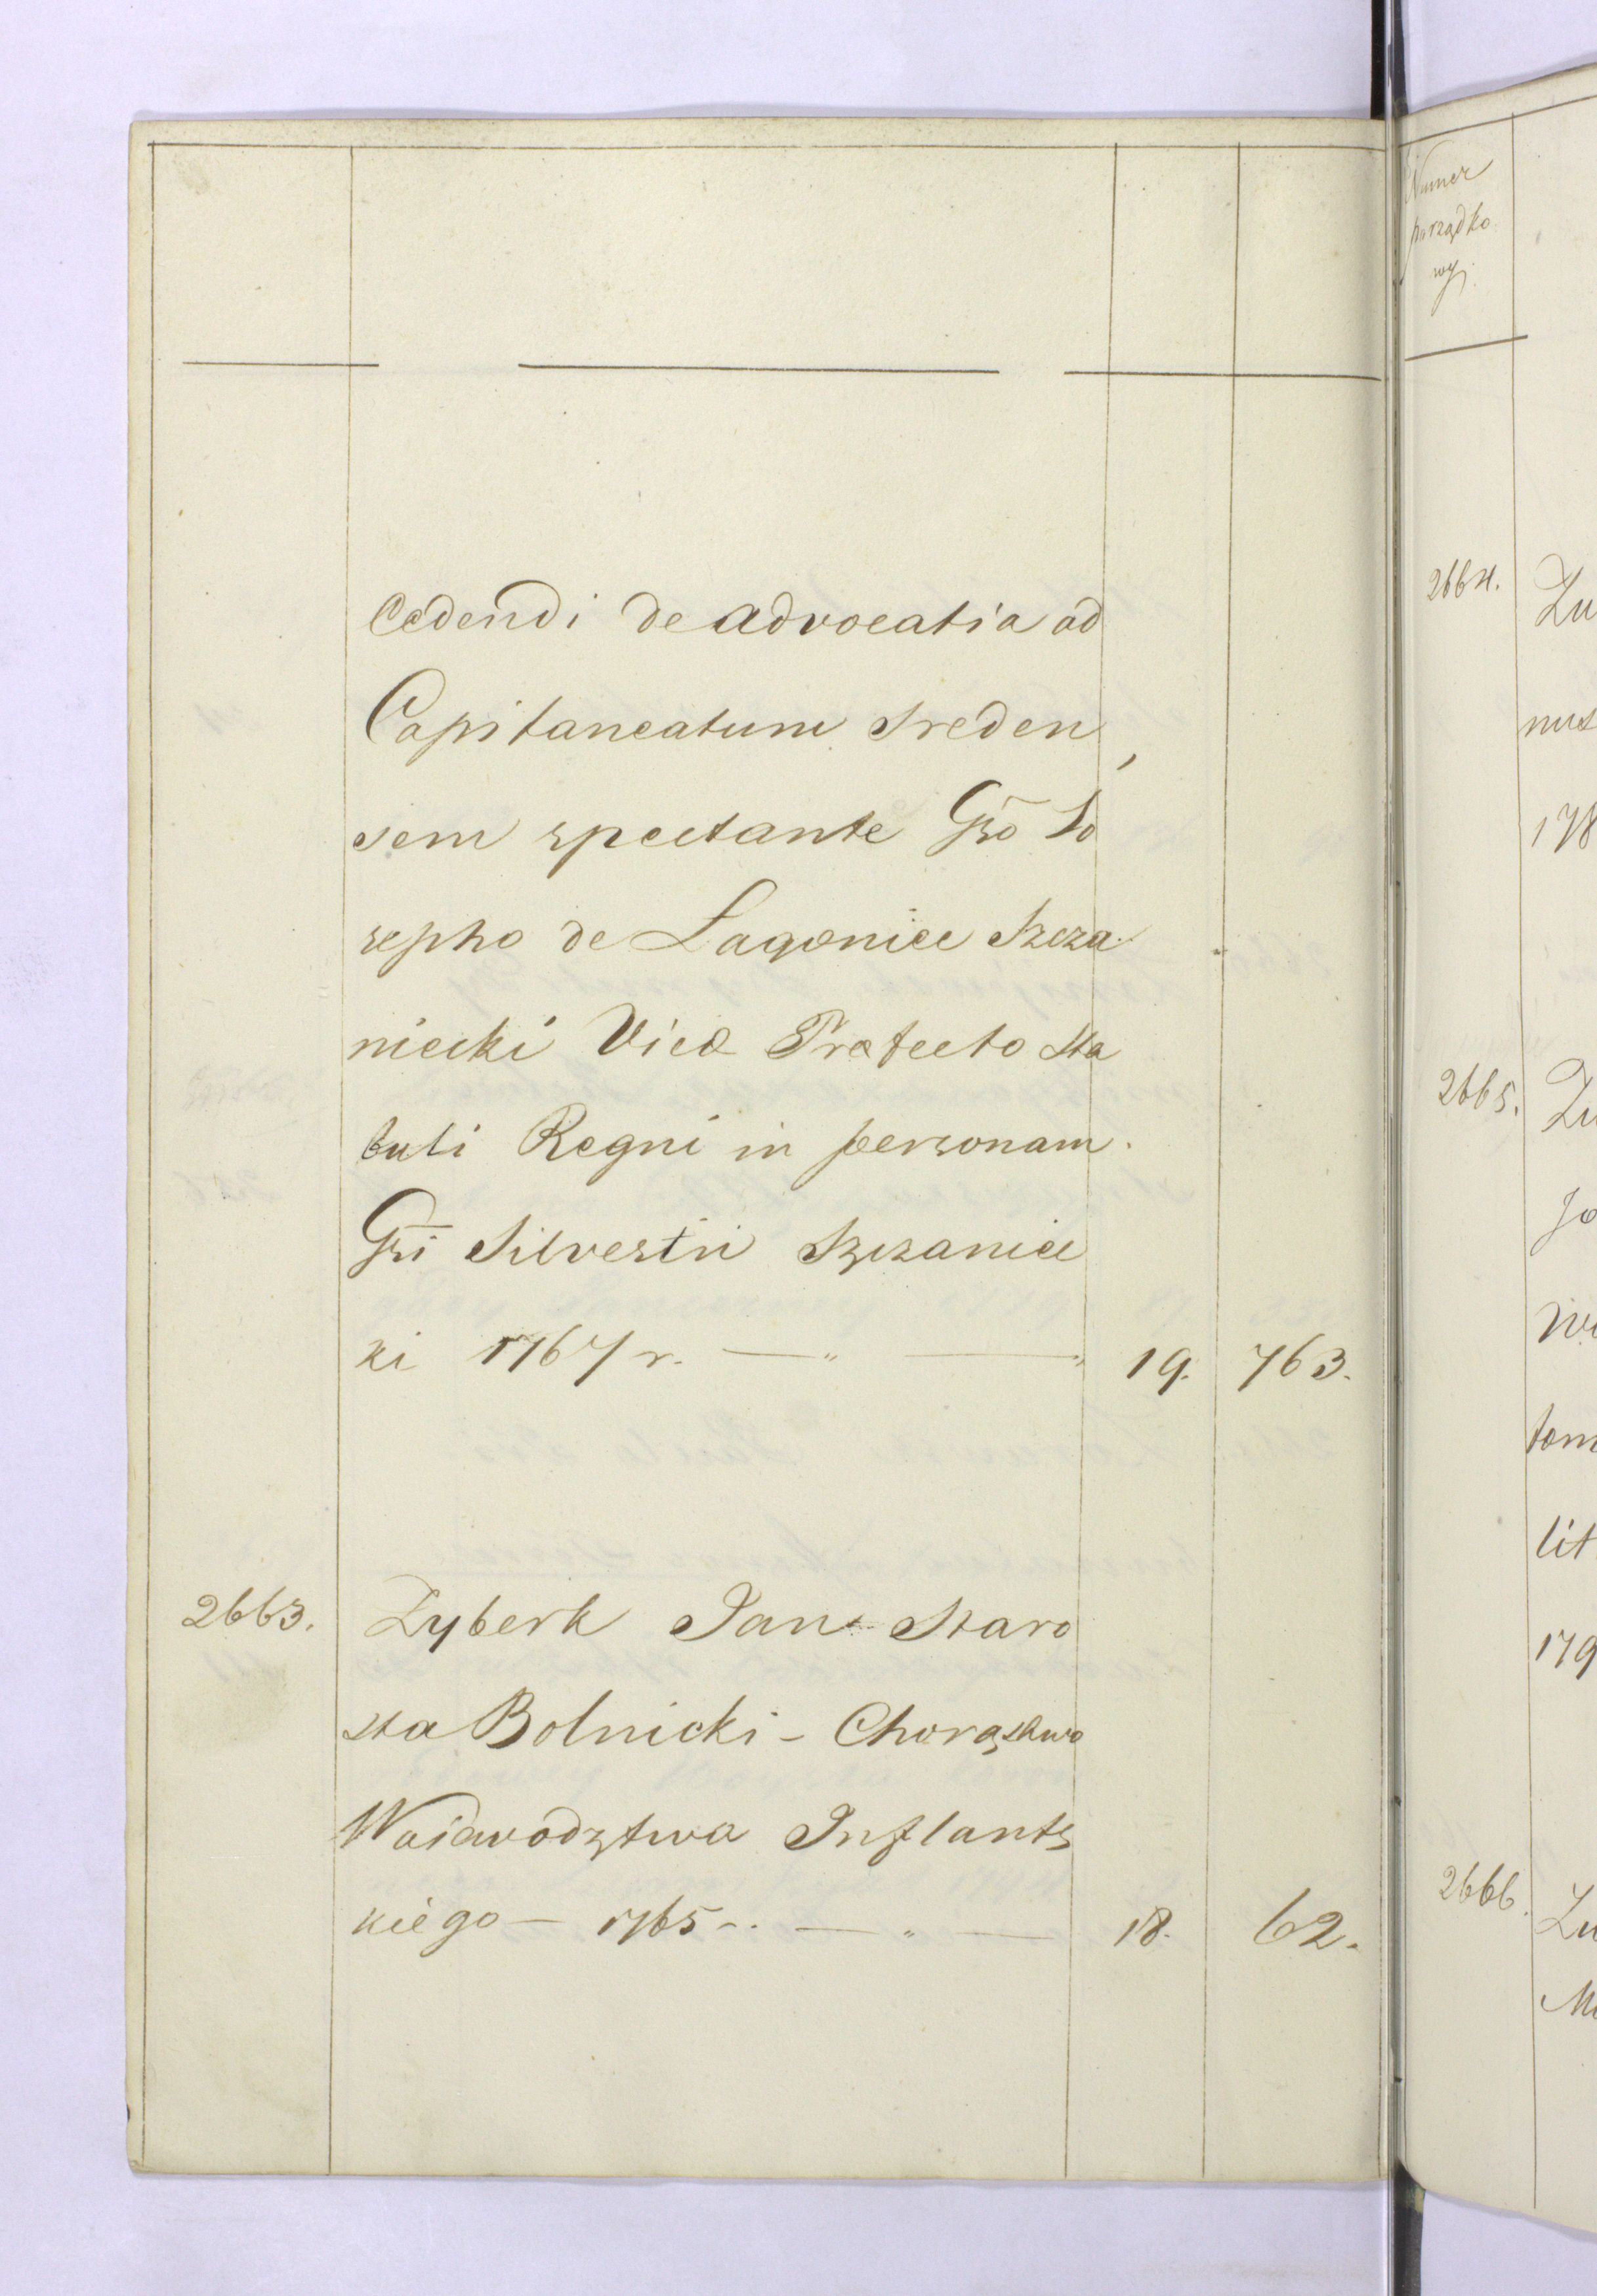 Cedendi de advocatia ad
Capitaneatum Sreden
sem spectante Gso Jo
sepho de Lagonice Szcza
niecki Vice Prefecto Sta
buli Regni in personam.
Gsi Silvestri Szczaniec
ki 1767 r. — " — " 19. 763.
2663. Zyberk Jan Staro
sta Bolnicki - Chorąstwo
Woiewodztwa Inflants
kiego — 1765 -. — " — 18. 62.
Numer
porządko
wy.
2664. Zu
nus
178
2665. Zu
Jo
tom
lit
179
2666. Zu